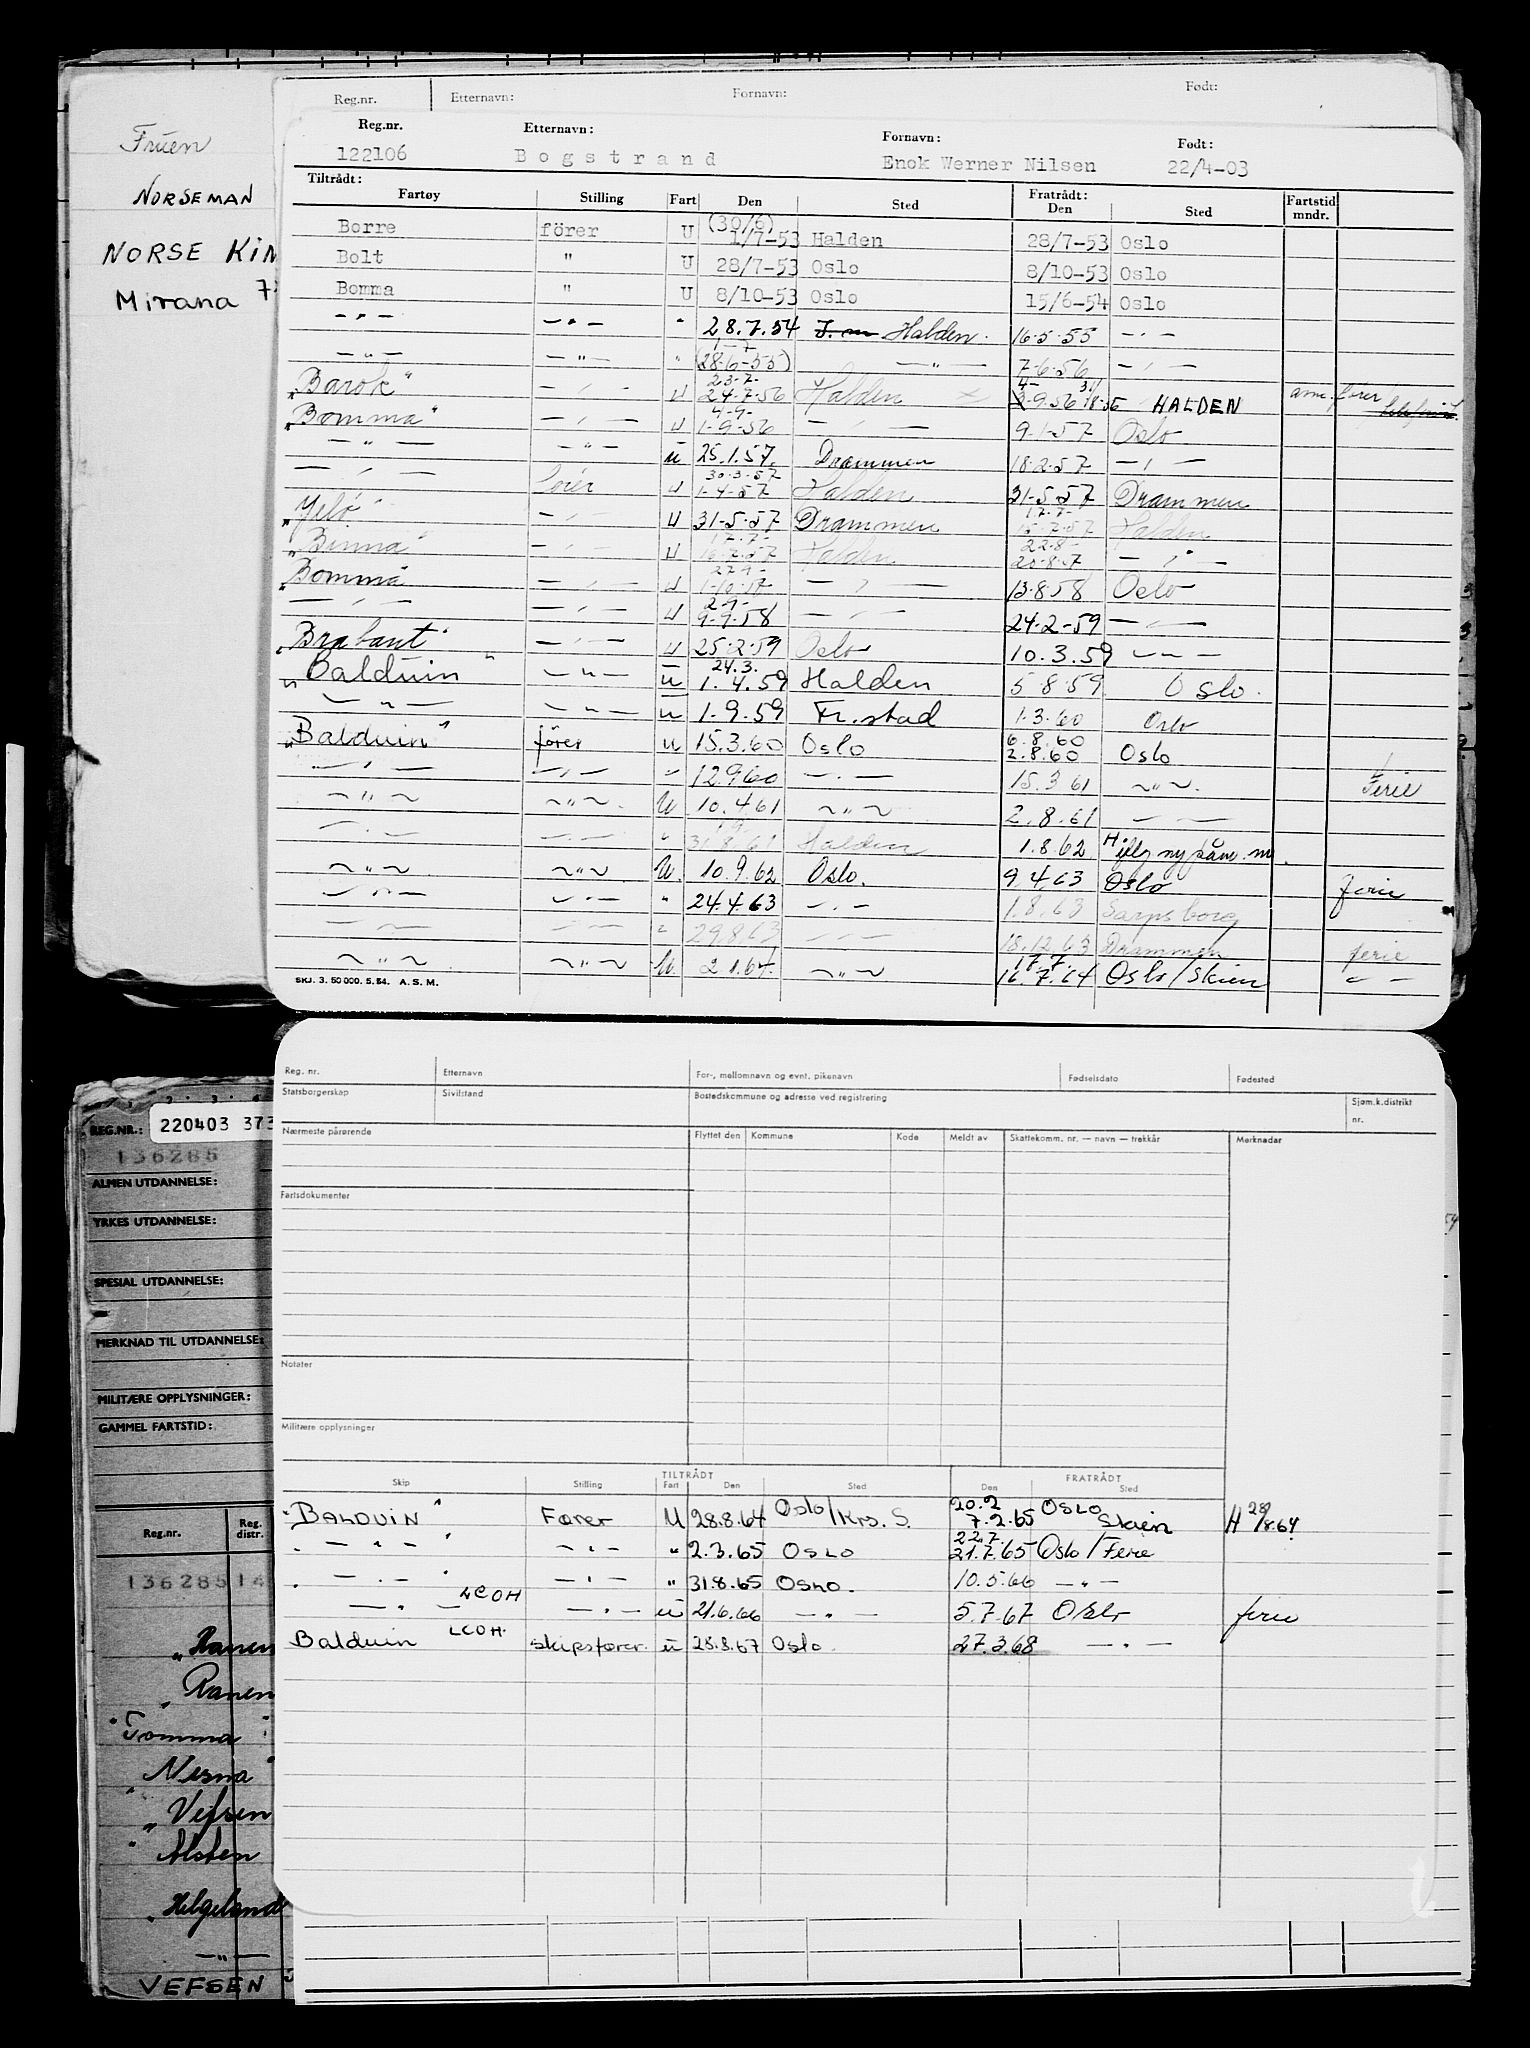 Fruen
NORSEMAN
NORSE KIN
Mirana
Reg.nr. Etternavn: Fornavn: Født:
Reg.nr. Etternavn: Fornavn: Født:
122106 Bogstrand Enok Werner Nilsen 22/4-03
Tiltrådt: Fratrådt: Fartstid
Fartøy Stilling Fart Den Sted Den Sted mndr.
(30/6)
Borre förer U 1/7-53 Halden 28/7-53 Oslo
Bolt " U 28/7-53 Oslo 8/10-53 Oslo
Bomma " U 8/10-53 Oslo 15/6-54 Oslo
— " — — " — " 28.7.54 Halden. 16.5.55 — " —
1-7
— " — — " — " (28.6-55) — " — 7.6.56 — " —
23.7-
"Barok" — " — U 24.7.56 Halden 9.56 HALDEN fører
4-9-
"Bomma" — " — U 1-9-56 — " — 9.1-57 Oslo
— " — — " — ü 25.1.57. Drammen 18.2.57 — " —
30.3.57
— " — fører U 1-4-57 Halden 31-5.57 Drammen
17.7-
"Jelö" — " — U 31-5.57 Drammen 15.7.57 Halden
17.7- 22.8-
"Binna" — " — U 16.7.57 Halden 20.8.57 — " —
27.9-
"Bomma — " — U 1-10.57 — " — 13.8.58 Oslo
2-9-
— " — — " — U 9-9.58 — " — 24.2-59 — " —
"Brabant" — " — U 25.2.59 Oslo 10.3.59 — " —
24.3.
"Balduin" — " — ü 1.4.59 Halden 5.8.59 Oslo.
— " — — " — ü 1.9.59 Fr.stad 1.3.60 Oslo
6.8.60
"Balduin" fører u 15.3.60 Oslo 2.8.60 Oslo
— " — — " — " 12.9.60 — " — 15.3.61 — " —. Ferie
— " — — " —. U 10.4.61 — " — 2.8.61 — " —
— " — — " — " 31.8.61 Halden 1.8.62 ny
— " — — " — U. 10.9.62 Oslo. 9.4.63 Oslo ferie
— " — — " — " 24.4.63 — " — 1.8.63 Sarpsborg
— " — — " — " 29.8.63 — " — 18.12.63 Drammen ferie
17.7.
— " — — " — U. 2.1.64. — " — 16.7.64 Oslo/Skien — " —
SKJ. 3. 50 000. 5. 54. A. S. M.
Reg. nr. Etternavn For-, mellomnavn og evnt. pikenavn Fødselsdato Fødested
Statsborgerskap Sivilstand Bostedskommune og adresse ved registrering Sjøm.k.distrikt
nr.
Nærmeste pårørende Flyttet den Kommune Kode Meldt av Skattekomm. nr. — navn — trekkår Merknader
Fartsdokumenter
Notater
Militære opplysninger
TILTRÅDT FRATRÅDT
Skip Stilling Fart Den Sted Den Sted
20.2 OSLO
"BALDUIN" Fører U 28.8.64 Oslo/Krs. S. 7.2.65 Skien H 28/8.64
22.7.
— " — — " — " 2.3.65 OSLO 21.7.65 Oslo/Ferie
— " — — " — " 31.8.65 OSLO. 10.5.66 — " —
— " — LCOH — " — ü 21.6.66 — " — 5.7.67 Oslo ferie
Balduin LCOH. skipsfører. ü 28.8.67 Oslo. 27.3.68 — " —
2 3 4
REG.NR.: 220403 373
136285
ALMEN UTDANNELSE:
YRKES UTDANNELSE:
SPESIAL UTDANNELSE:
MERKNAD TIL UTDANNELSE:
MILITÆRE OPPLYSNINGER:
GAMMEL FARTSTID:
Reg.nr. Reg. distr.
136285 14
"Ranen
"Ranen
"Tomma
"Nesna"
"Vefsen
"Alsten
"Helgeland
— " —
VEFSEN